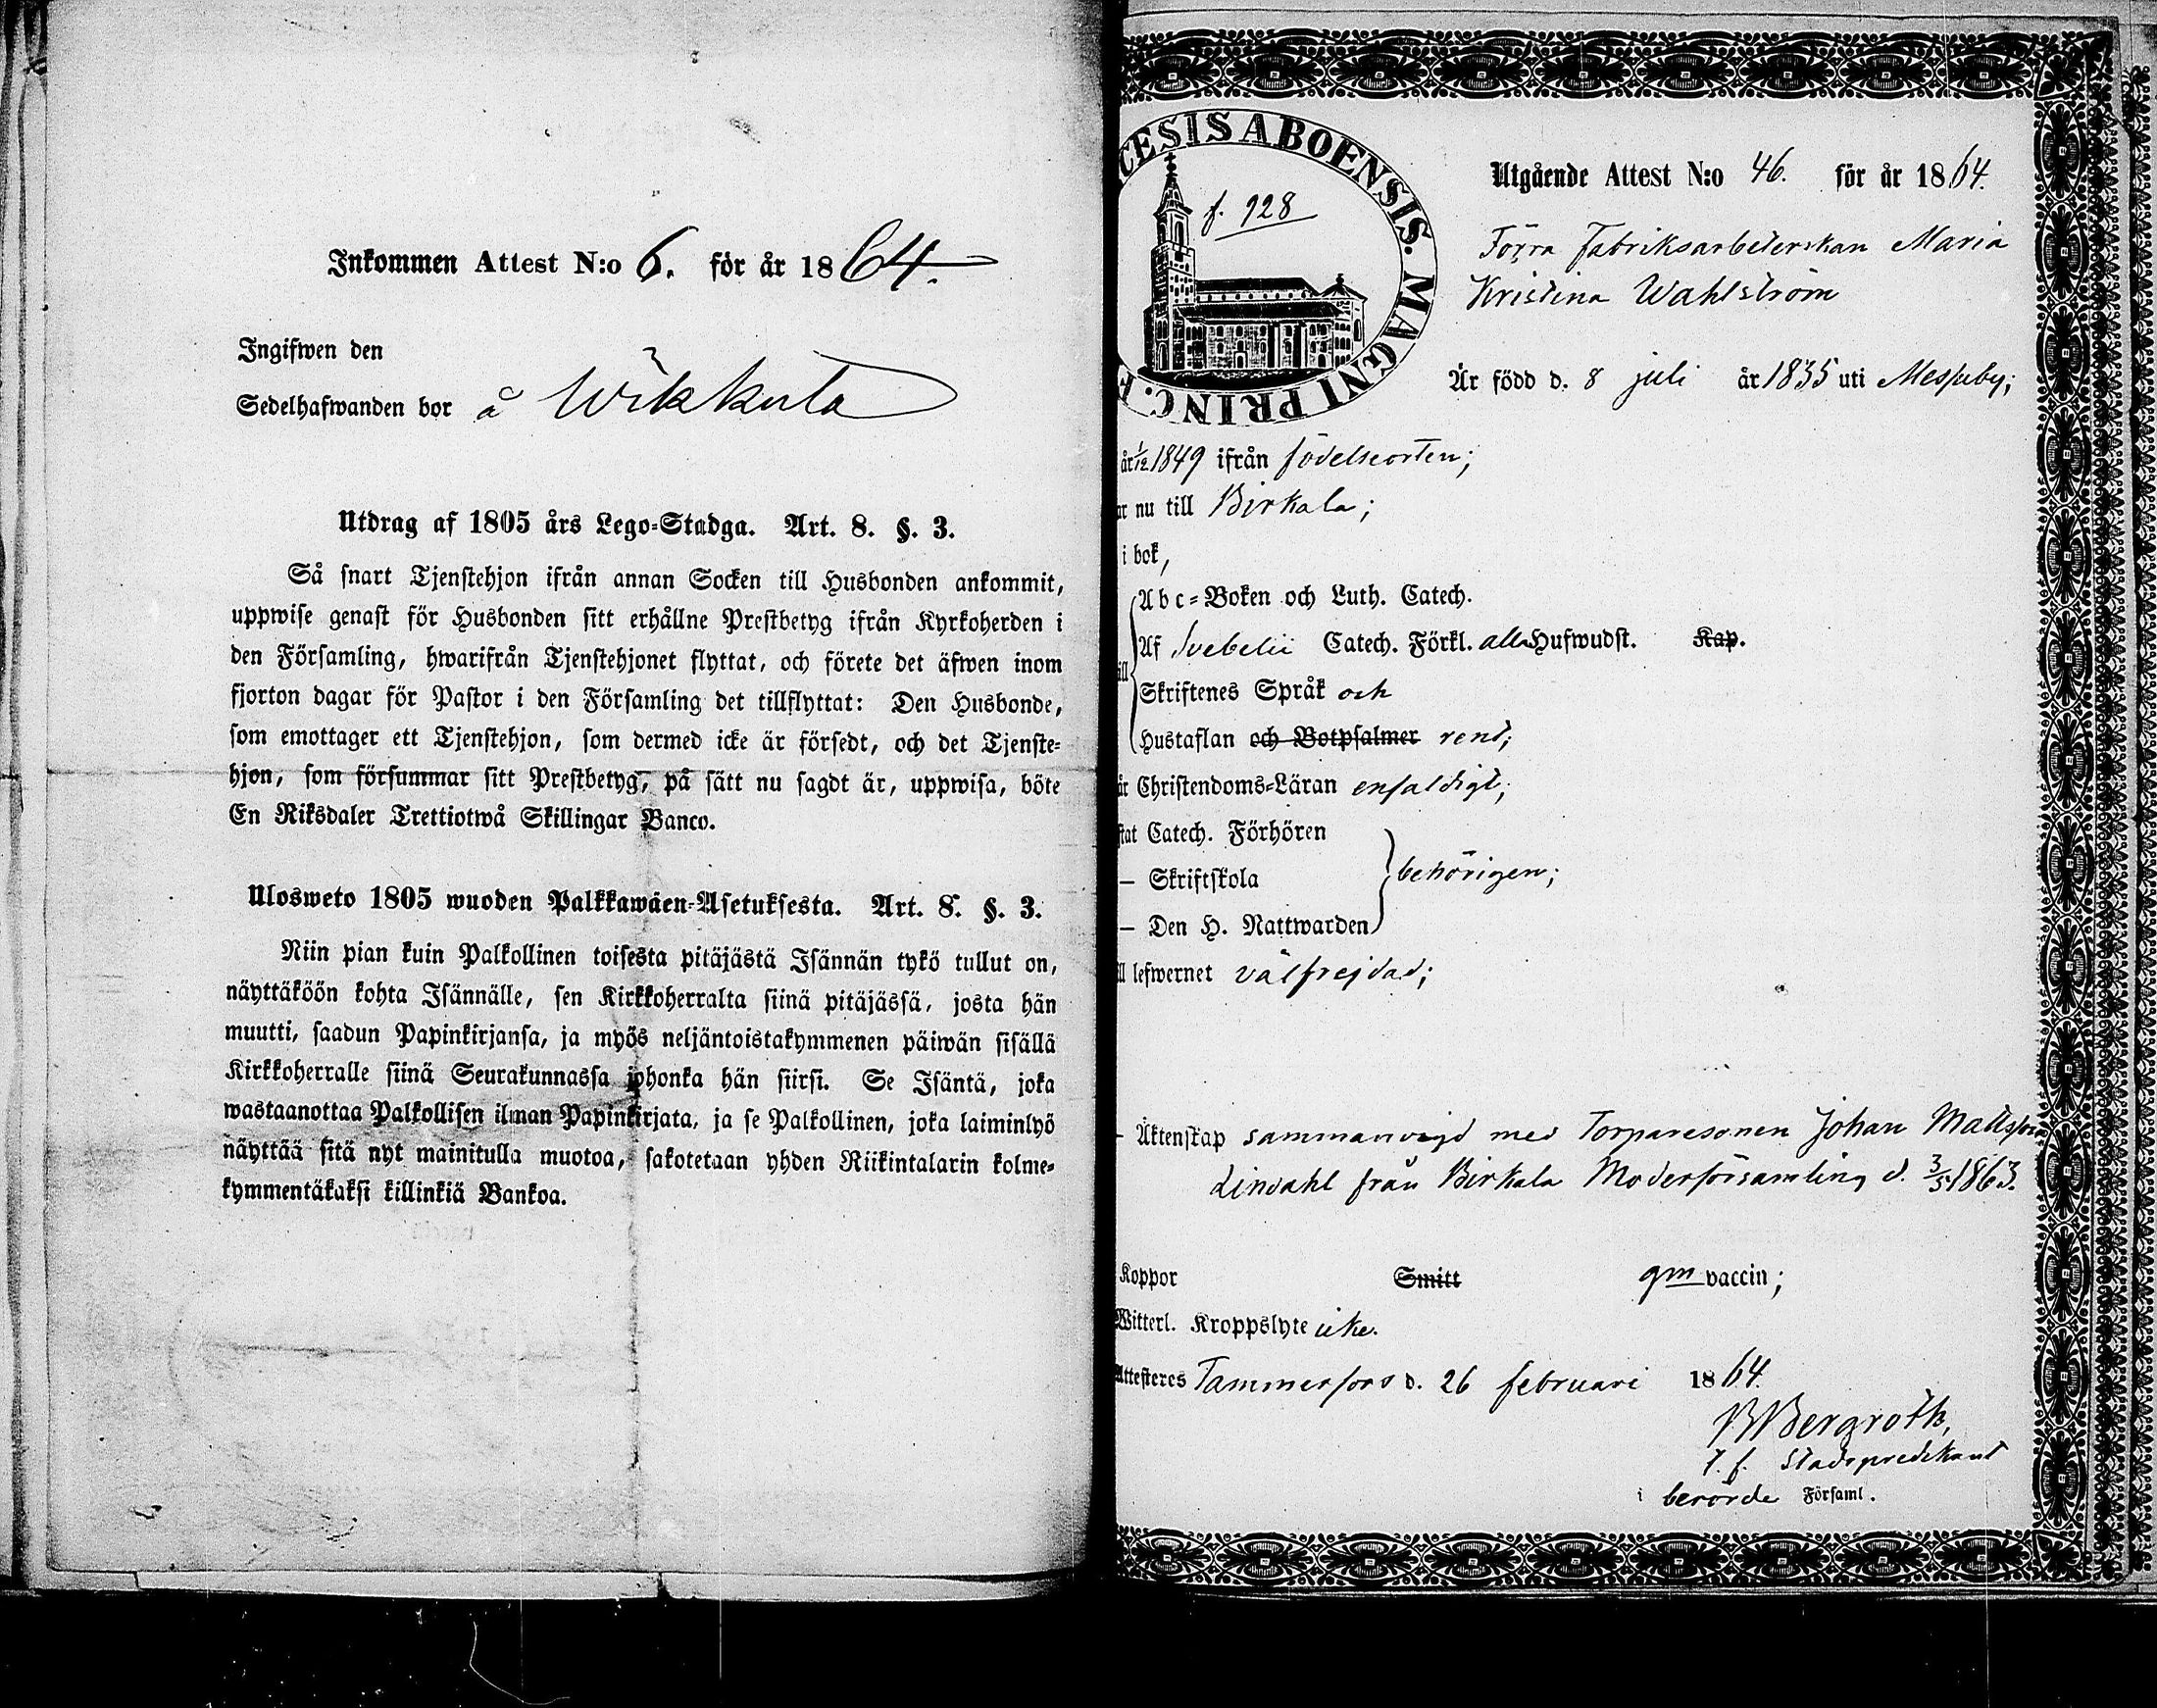 Inkommen Attest N:o 6. för år 1864.
Ingifwen den
Sedelhafwanden bor å Wikkula
Utdrag af 1805 års Lego-Stadga. Art. 8. §. 3.
Så snart Tjenstehjon ifrån annan Socken till Husbonden ankommit,
uppwise genast för Husbonden sitt erhållne Prestbetyg ifrån Kyrkoherden i
den Församling, hwarifrån Tjenstehjonet flyttat, och förete det äfwen inom
fjorton dagar för Pastor i den Församling det tillflyttat: Den Husbonde,
som emottager ett Tjenstehjon, som dermed icke är försedt, och det Tjenste-
hjon, som försummar sitt Prestbetyg, på sätt nu sagdt är, uppwisa, böte
En Riksdaler Trettiotwå Skillingar Banco.
Ulosweto 1805 wuoden Palkkawäen-Asetuksesta. Art. 8. §. 3.
Niin pian kuin Palkollinen toisesta pitäjästä Isännän tykö tullut on,
näyttäköön kohta Isännälle, sen Kirkkoherralta siinä pitäjässä, josta hän
muutti, saadun Papinkirjansa, ja myös neljäntoistakymmenen päiwän sisällä
Kirkkoherralle siinä Seurakunnassa johonka hän siirsi. Se Isäntä, joka
wastaanottaa Palkollisen ilman Papinkirjata, ja se Palkollinen, joka laiminlyö
näyttää sitä nyt mainitulla muotoa, sakotetaan yhden Riikintalarin kolme-
kymmentäkaksi killinkiä Bankoa.
CESIS ABOENSIS. MAGNI PRINC. F
f. 928
Utgående Attest N:o 46. för år 1864.
Förra Fabriksarbeterskan Maria
Kristina Wahlström
Är född d. 8 juli år 1835 uti Messuby;
år 1/12 1849 ifrån födelseorten;
är nu till Birkala;
i bok,
Abc-Boken och Luth. Catech.
Af Svebelii Catech. Förkl. alla Hufwudst. Kap.
Skriftenes Språk och
Hustaflan och Botpsalmer rent;
år Christendoms-Läran enfaldigt;
stat Catech. Förhören
— Skriftskola behörigen;
— Den H. Nattwarden
ll lefwernet välfrejdad;
- Äktenskap sammanvigd med Torparesonen Johan Mattsson
Lindahl från Birkala Moderförsamling d. 3/5 1863.
Koppor Smitt gm vaccin;
Witterl. Kroppslyte icke.
Attesteres Tammerfors d. 26 februari 1864.
Bergroth,
t. f. Stadspredikant
i berörde Församl.